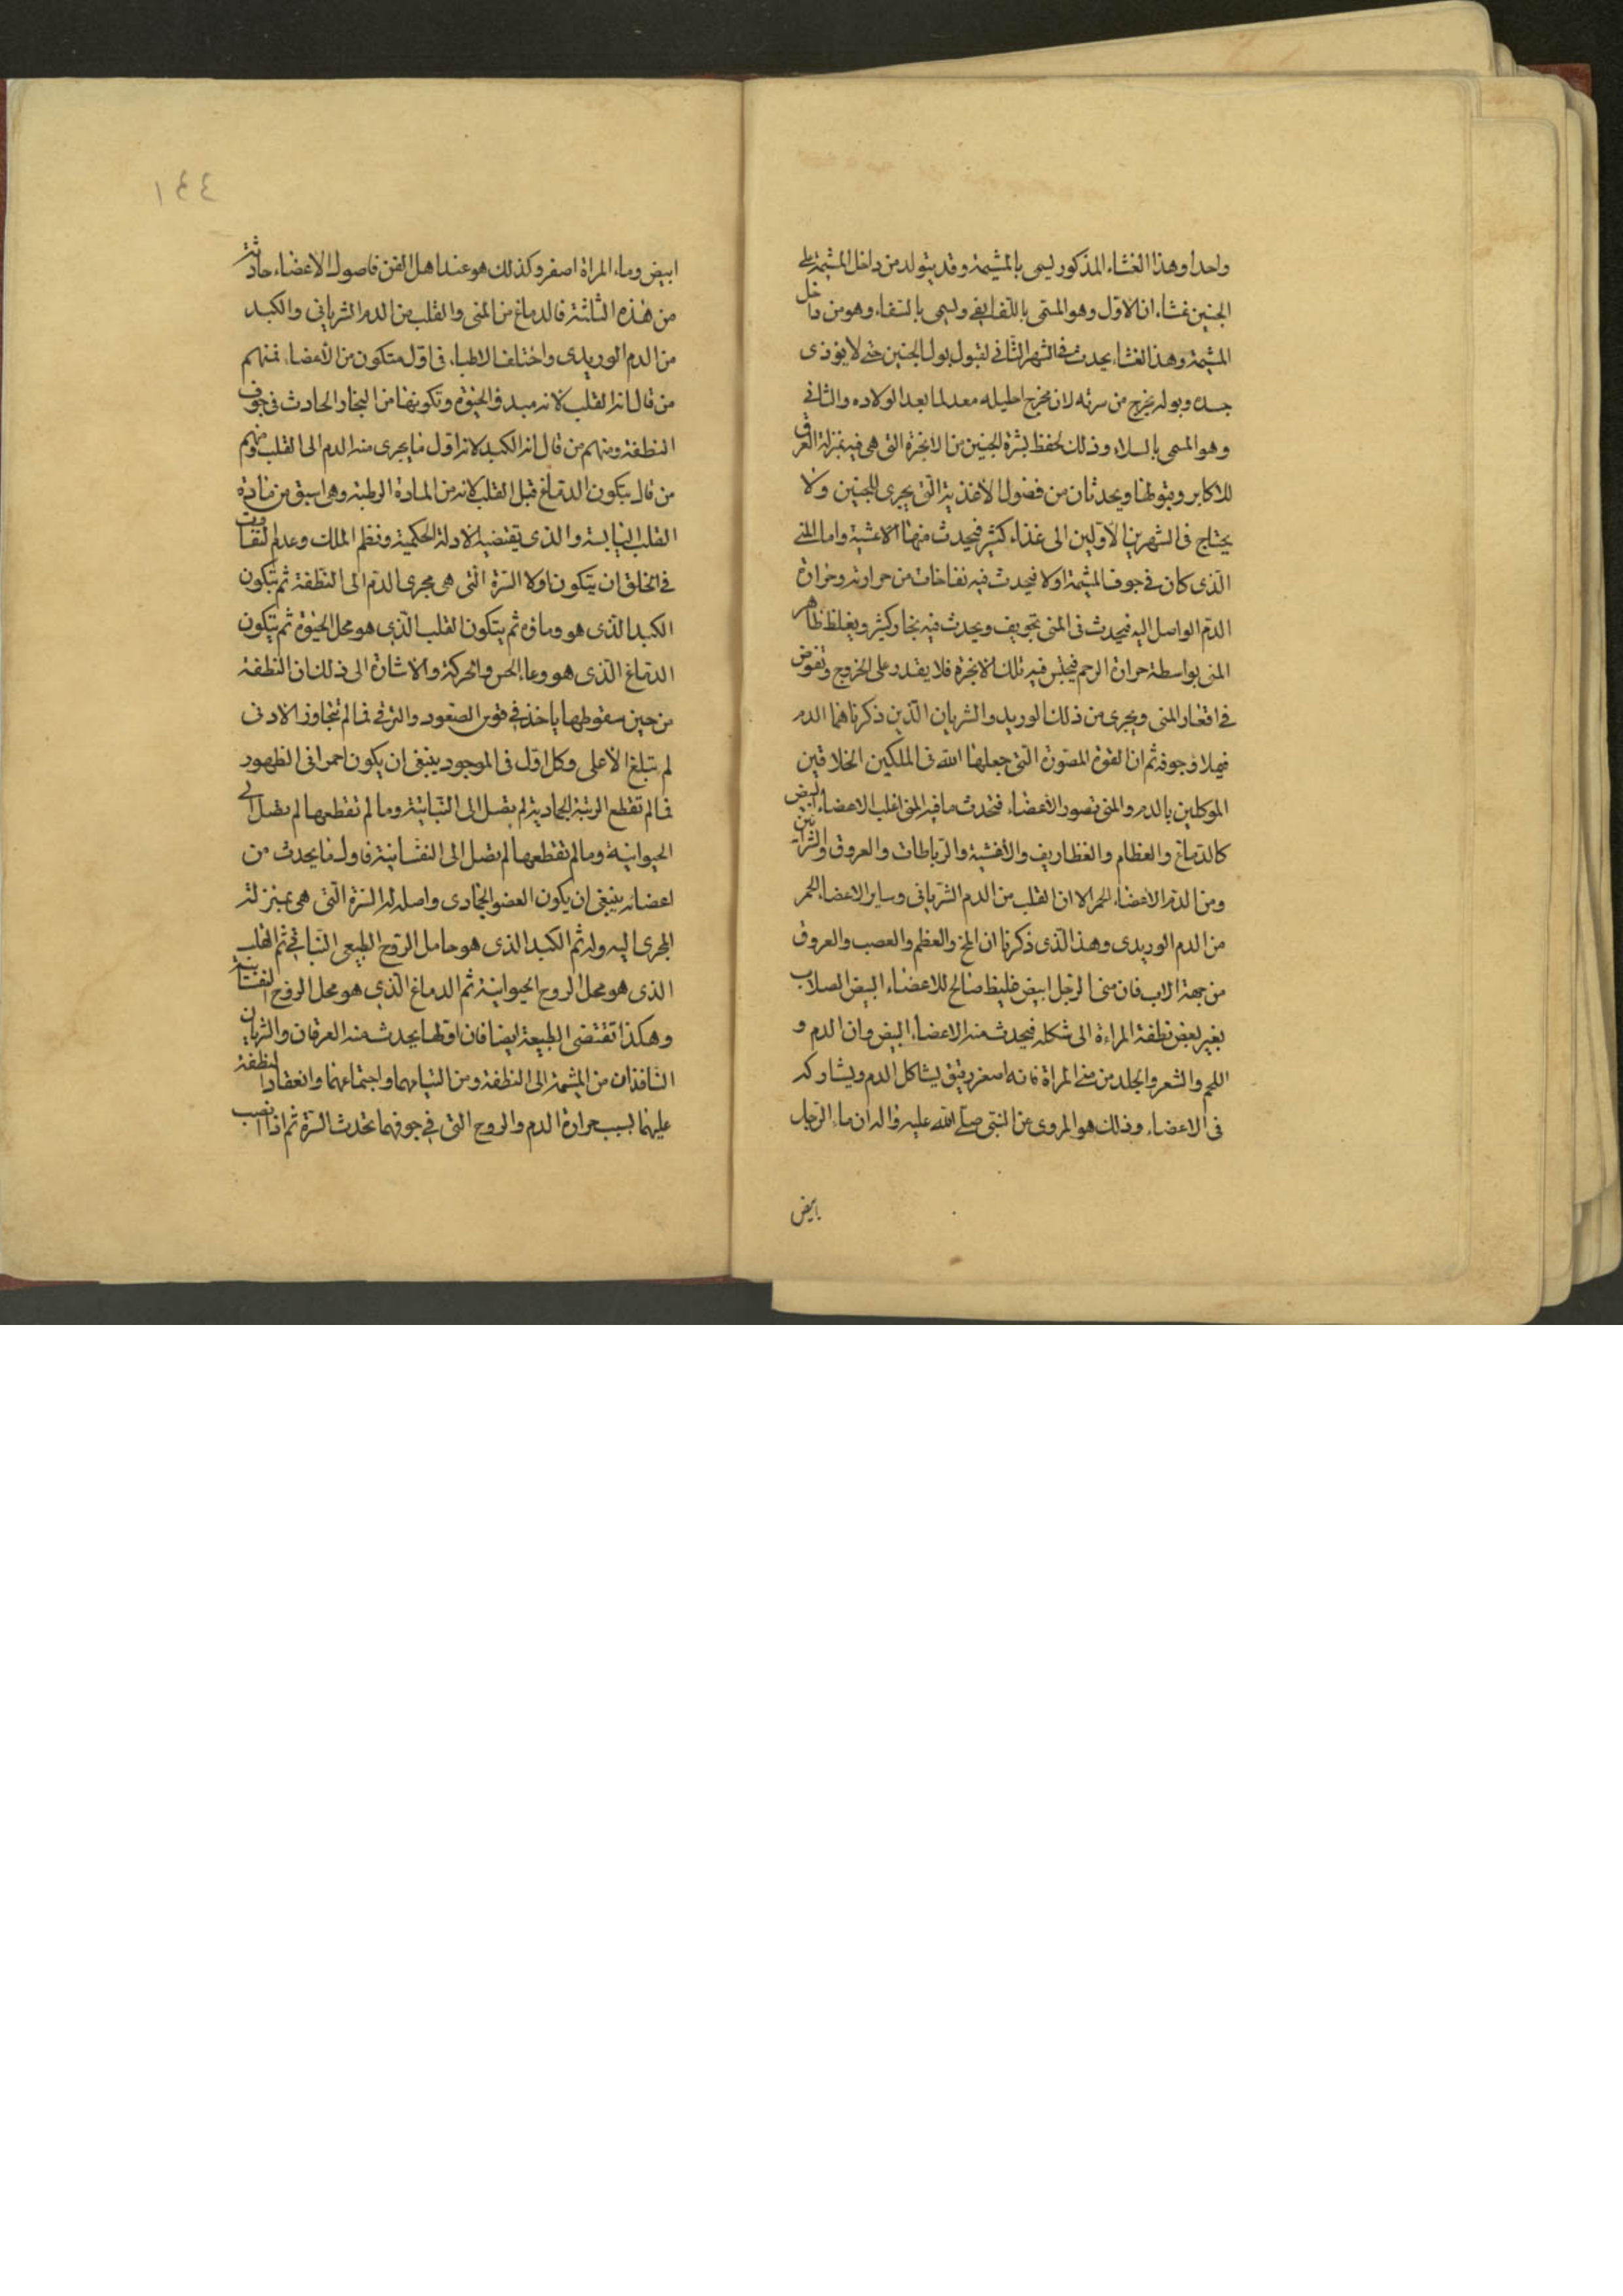 واحدا وهذا الغشاء المذكور يسمى بالمشيمة وقد يتولد من داخل المشيمة على
الجنين غشاءان الاول وهو المسمى باللفايفى ويسمى بالسقاء وهو من داخل
المشيمة وهذا الغشاء يحدث فى الشهر الثانى لقبول بول الجنين حتى لا يوذى
جسده وبوله يخرج من سرته لان مخرج احليله معد لما بعد الولاده والثانى
وهو المسمى بالسلاء وذلك لحفظ بشرة الجنين من الابخرة التى هى فيه بمنزلة العرق
للاكابر ويحدثان من فضول الاغذية التى يجرى للجنين ولا
يحتاج فى الشهرين الاولين الى غذاء كثير فيحدث منها الاغشية واما المنى
الذى كان فى جوف المشيمة اولا فيحدث فيه نفاخات من حرارته وحرارة
الدم الواصل اليه فيحدث فى المنى تجويف ويحدث فيه بخار كثير ويغلظ ظاهر
المنى بواسطة حرارة الرحم فيحتبس فيه تلك الابخرة فلا يقدر على الخروج وتغوص
فى اقعار المنى ويجرى من ذلك الوريد والشريان الذين ذكرناهما الدم
فيملاء جوفه ثم ان القوة المصورة التى جعلها الله فى الملكين الخلاقين
الموكلين بالدم والمنى تصور الاعضاء فتحدث مافيه المنى اغلب الاعضاء البيض
كالدماغ والعظام والغظاريف والاغشية والرباطات والعروق والشرائين
ومن الدم الاعضاء الحمر الا ان القلب من الدم الشريانى وساير الاعضاء الحمر
من الدم الوريدى وهذا الذى ذكرنا ان المخ والعظم والعصب والعروق
من جهة الاب فان منى الرجل ابيض غليظ صالح للاعضاء البيض الصلاب
بغير بعض نطفة المراءة الى شكله فيحدث منه الاعضاء البيض وان الدم و
اللحم والشعر والجلد من منى المراة فانه اصفر رقيق يشاكل الدم ويشاركه
فى الاعضاء وذلك هو المروى عن النبى صلى الله عليه واله ان ماء الرجل
ابيض
١٤٤
ابيض وماء المراة اصفر وكذلك هو عند اهل الفن فاصول الاعضاء حادثة
من هذه الثلثة فالدماغ من المنى والقلب من الدم الشريانى والكبد
من الدم الوريدى واختلف الاطباء فى اول متكون من الاعضاء فمنهم
من قال انه القلب لانه مبدء الحيوة وتكونها من البخار الحادث فى جوف
النطفة ومنهم من قال انه الكبد لانه اول ما يجرى منه الدم الى القلب ومنهم
من قال بتكون الدماغ قبل القلب لانه من المادة الرطبة وهى اسبق من مادة
القلب اليابسة والذى يقتضيه الادلة الحكمية ونظم الملك وعدم التفاوت
فى الخلق ان يتكون اولا السرة التى هى مجرى الدم الى النطفة ثم يتكون
الكبد الذى هو وماؤه ثم يتكون القلب الذى هو محل الحيوة ثم يتكون
الدماغ الذى هو وعاء الحس والحركة والاشارة الى ذلك ان النطفة
من حين سقوطها ياخذ فى قوس الصعود والترقى فما لم تتجاوز الادنى
لم تبلغ الاعلى وكل اول فى الموجود ينبغى ان يكون اخرا فى الظهور
فما لم تقطع الرتبة الجمادية لم يصل الى النباتية وما لم تقطعها لم يصل الى
الحيوانية وما لم تقطعها لم يصل الى النفسانية فاول ما يحدث من
اعضائه ينبغى ان يكون العضو الجمادى واصله له السرة التى هى بمنزلة
المجرى اليه وله ثم الكبد الذى هو حامل الروح الطبيعى النباتى ثم القلب
الذى هو محل الروح الحيوانية ثم الدماغ الذى هو محل الروح النفسانية
وهكذا تقتضى الطبيعة ايضا فان اول ما يحدث منه العرقان والشريان
النافذان من المشيمة الى النطفة ومن التيامهما واجتماعهما وانعقاد النطفة
عليهما بسبب حرارة الدم والروح التى فى جوفهما تحدث السرة ثم اذا انصب